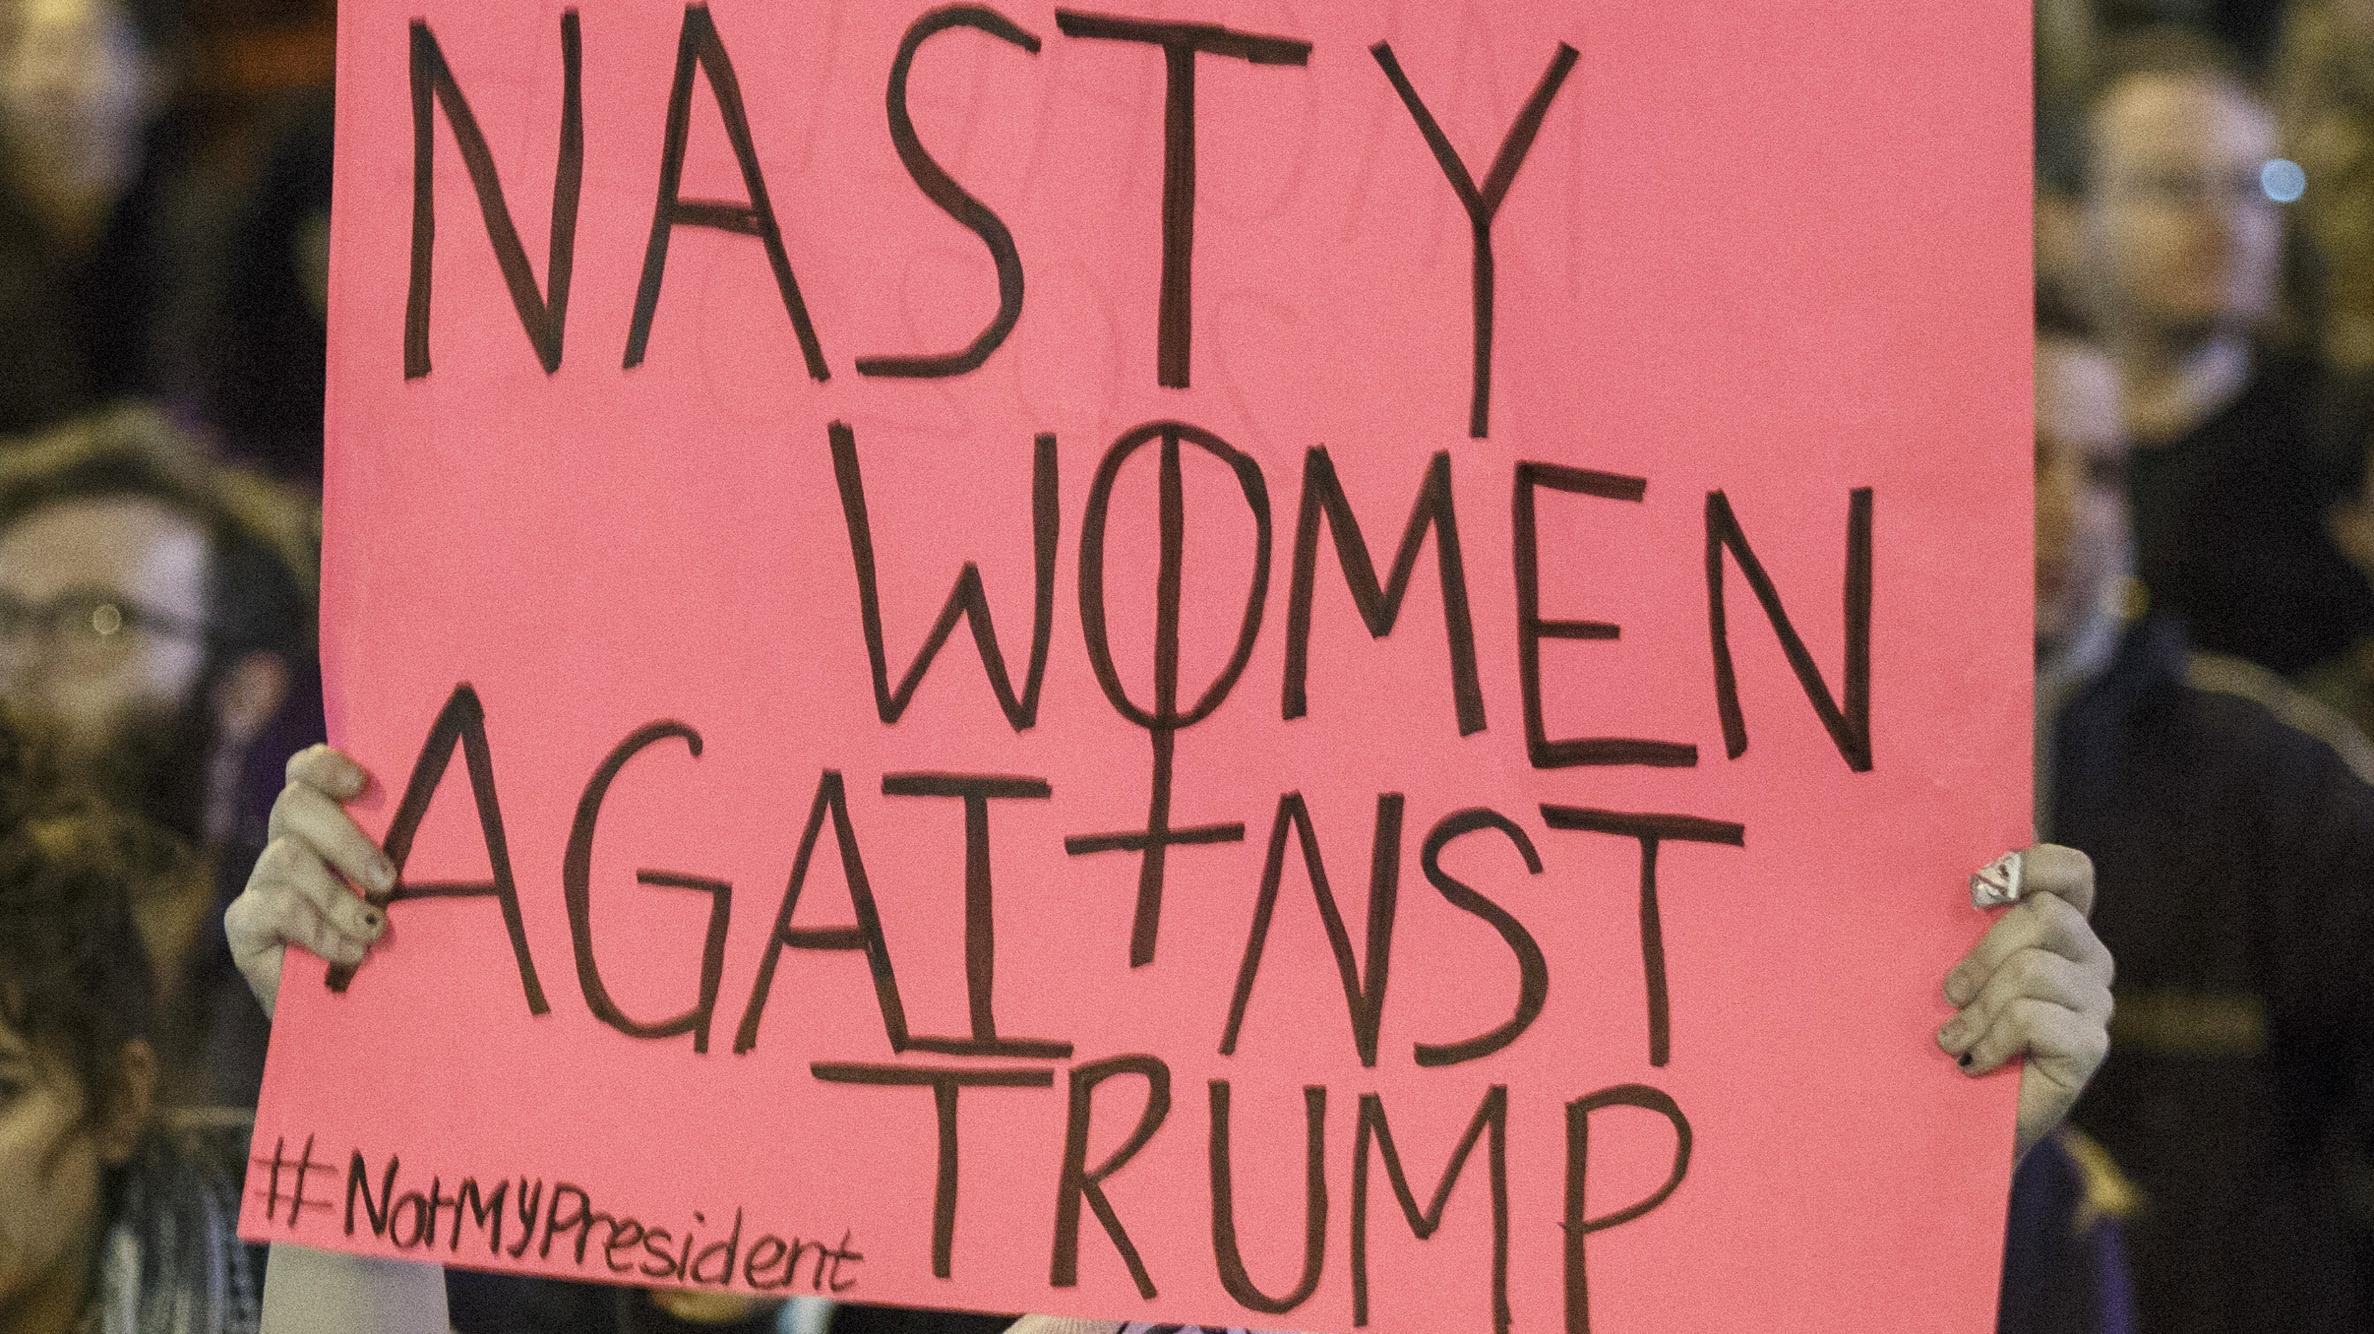 NASTY
WOMEN
AGAINST
TRUMP
#NotMYPresident